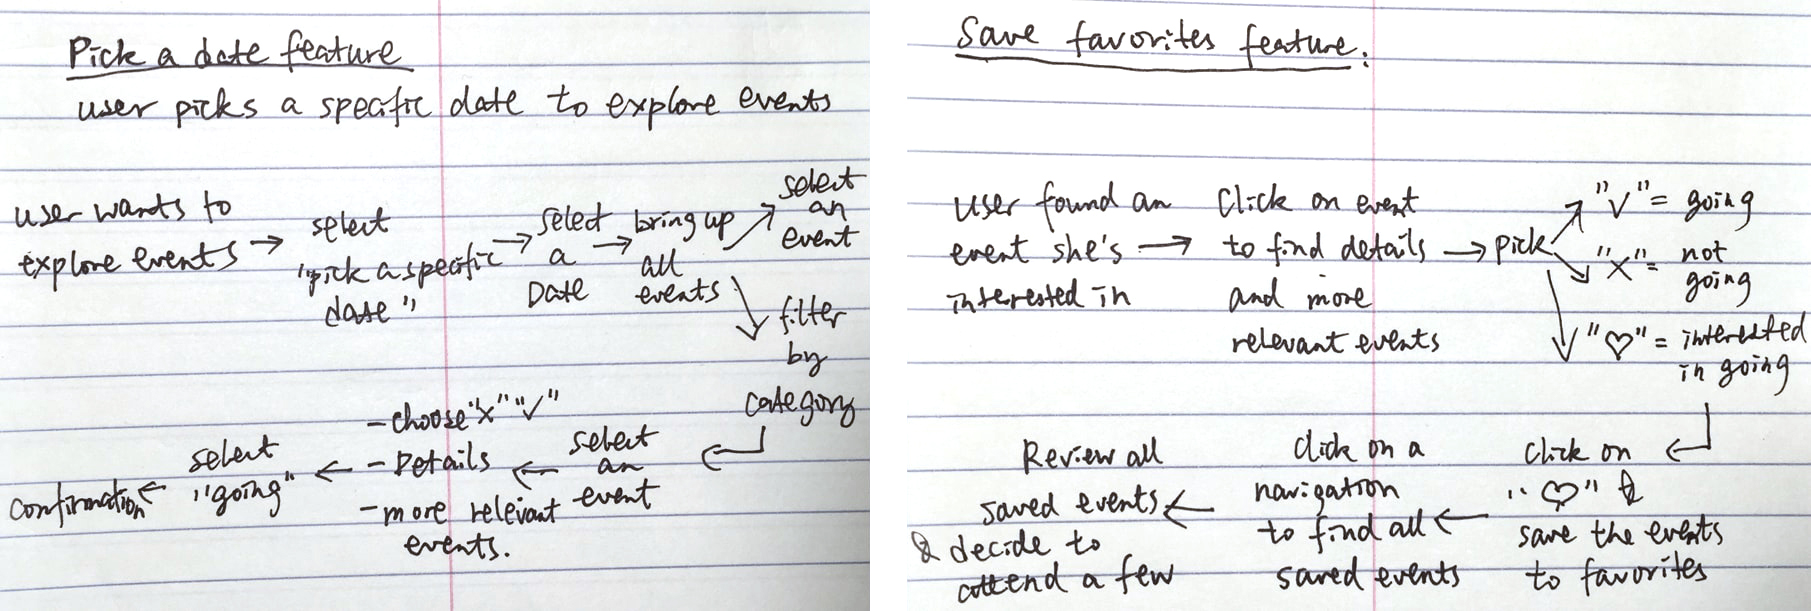 Pick a date feature
user picks a specific date to explore events
user wants to
explore events →
select
"pick a specific
date"
→
select
a
Date
→
bring up
all
events
select
an
event
filter
by
category
select
an
event
←
- choose "x" "✓"
- Details
- more relevant
events.
←
select
"going"
←
confirmation
Save favorites feature:
User found an
event she's →
interested in
Click on event
to find details
and more
relevant events
→ pick
"✓" = going
"x" = not
going
"♡" = interested
in going
Click on
"♡" &
save the events
to favorites
←
Click on a
navigation
to find all
saved events
←
Review all
saved events
& decide to
attend a few